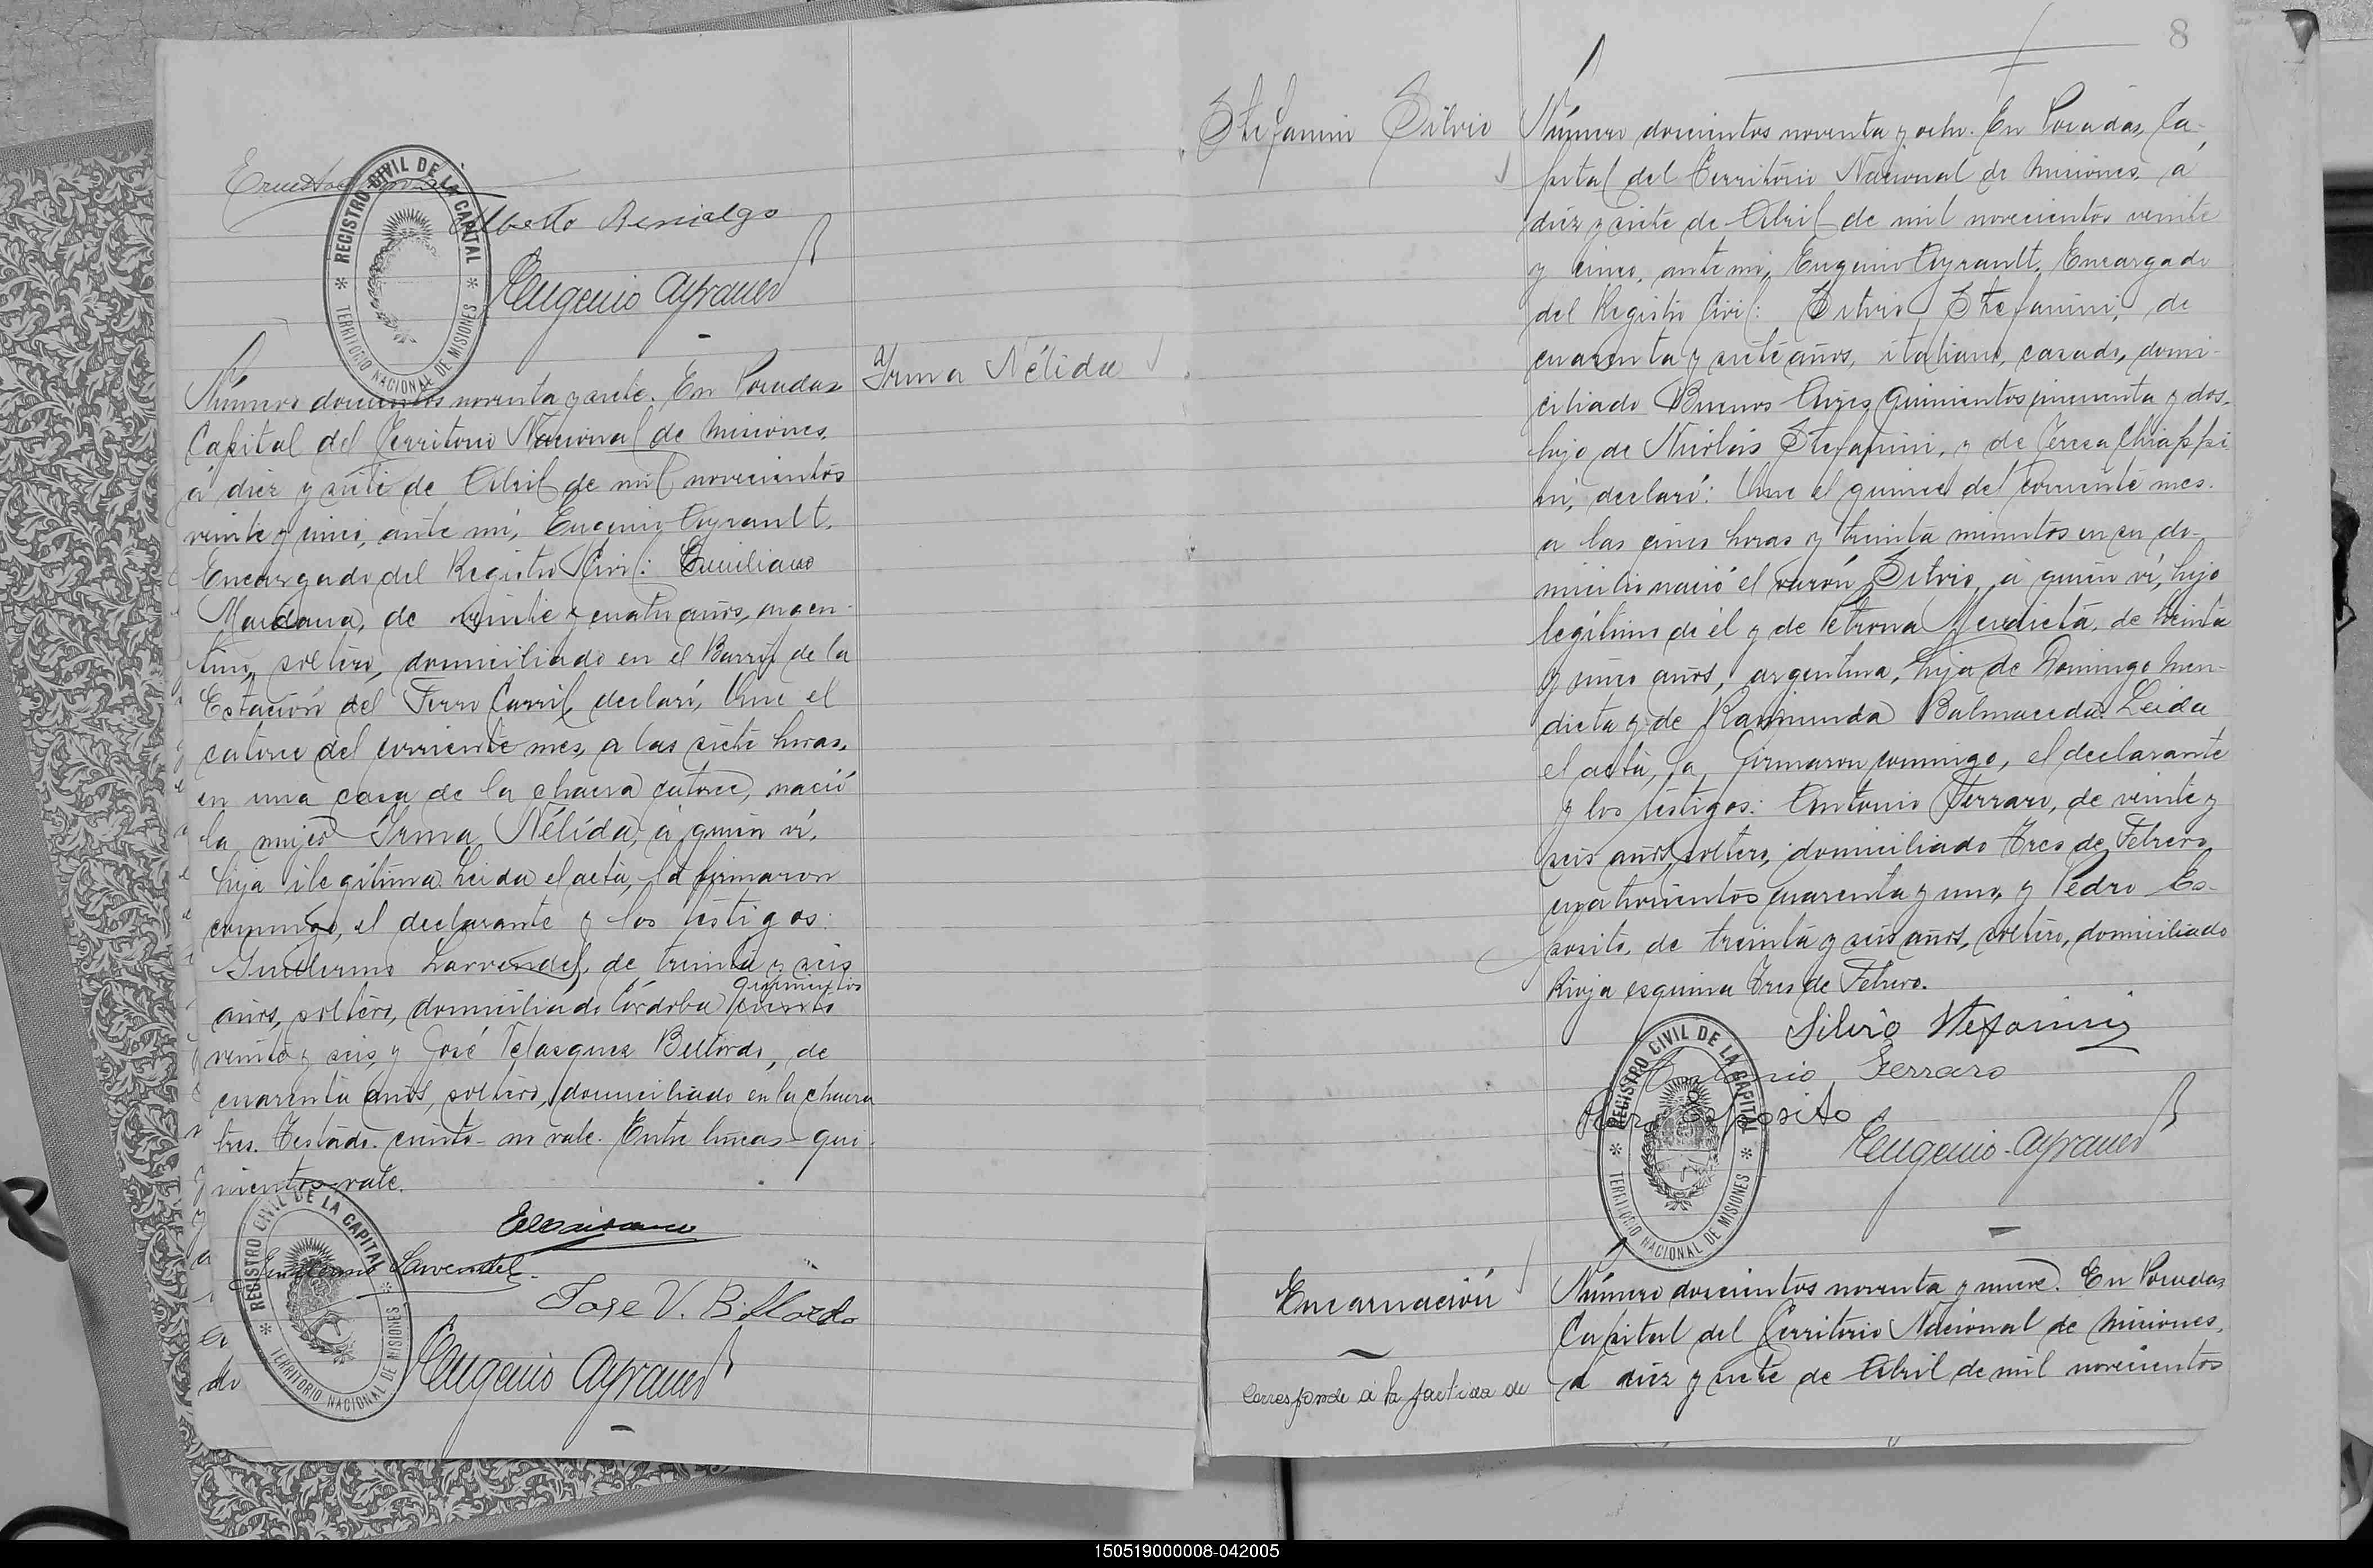 Alberto Benialgo
Eugenio Ayrault
REGISTRO CIVIL DE LA CAPITAL
TERRITORIO NACIONAL DE MISIONES
Irma Nélida
Número doscientos noventa y siete. En Posadas
Capital del Territorio Nacional de Misiones,
á diez y siete de Abril de mil novecientos
veinte y cinco, ante mí, Eugenio Ayrault,
Encargado del Registro Civil: Emiliano
Maidana, de veinte y cuatro años, argen-
tino, soltero, domiciliado en el Barrio de la
Estación del Ferro Carril, declaró, Que el
catorce del corriente mes, a las siete horas,
en una casa de la chacra catorce, nació
la mujer Irma Nélida, á quien ví,
hija ilegítima. Leida el acta, la firmaron
conmigo, el declarante y los testigos:
Guillermo Lavvendel, de treinta y seis
años, soltero, domiciliado Córdoba ciento quinientos
veinte y seis, y José Velasquez Billordo, de
cuarenta años, soltero, domiciliado en la chacra
tres. Testado-ciento-no vale. Entre lineas-qui-
nientos-vale.
Guillermo Lavendel
Jose V. Billordo
Eugenio Ayrault
REGISTRO CIVIL DE LA CAPITAL
TERRITORIO NACIONAL DE MISIONES
8
Stefanini Silvio
Número doscientos noventa y ocho. En Posadas, Ca-
pital del Territorio Nacional de Misiones, á
diez y siete de Abril de mil novecientos veinte
y cinco, ante mi, Eugenio Ayrault, Encargado
del Registro Civil: Silvio Stefanini, de
cuarenta y siete años, italiano, casado, domi-
ciliado Buenos Aires quinientos cincuenta y dos,
hijo de Nicolás Stefanini, y de Teresa Chiappi-
ni, declaró: Que el quince del corriente mes.
a las cinco horas y treinta minutos en su do-
micilio nació el varón Silvio, á quien ví, hijo
legítimo de él y de Petrona Mendieta, de treinta
y cinco años, argentina, hija de Domingo Men-
dieta y de Raimunda Balmaceda. Leida
el acta, la firmaron conmigo, el declarante
y los testigos: Antonio Ferraro, de veinte y
seis años, soltero, domiciliado Tres de Febrero
cuatrocientos cuarenta y uno, y Pedro Es-
posito, de treinta y seis años, soltero, domiciliado
Rioja esquina Tres de Febrero.
Silvio Stefanini
Antonio Ferraro
Pedro Esposito
Eugenio Ayrault
REGISTRO CIVIL DE LA CAPITAL
TERRITORIO NACIONAL DE MISIONES
Encarnación
Corresponde á la partida de
Número doscientos noventa y nueve. En Posadas
Capital del Territorio Nacional de Misiones,
á diez y siete de Abril de mil novecientos
150519000008-042005